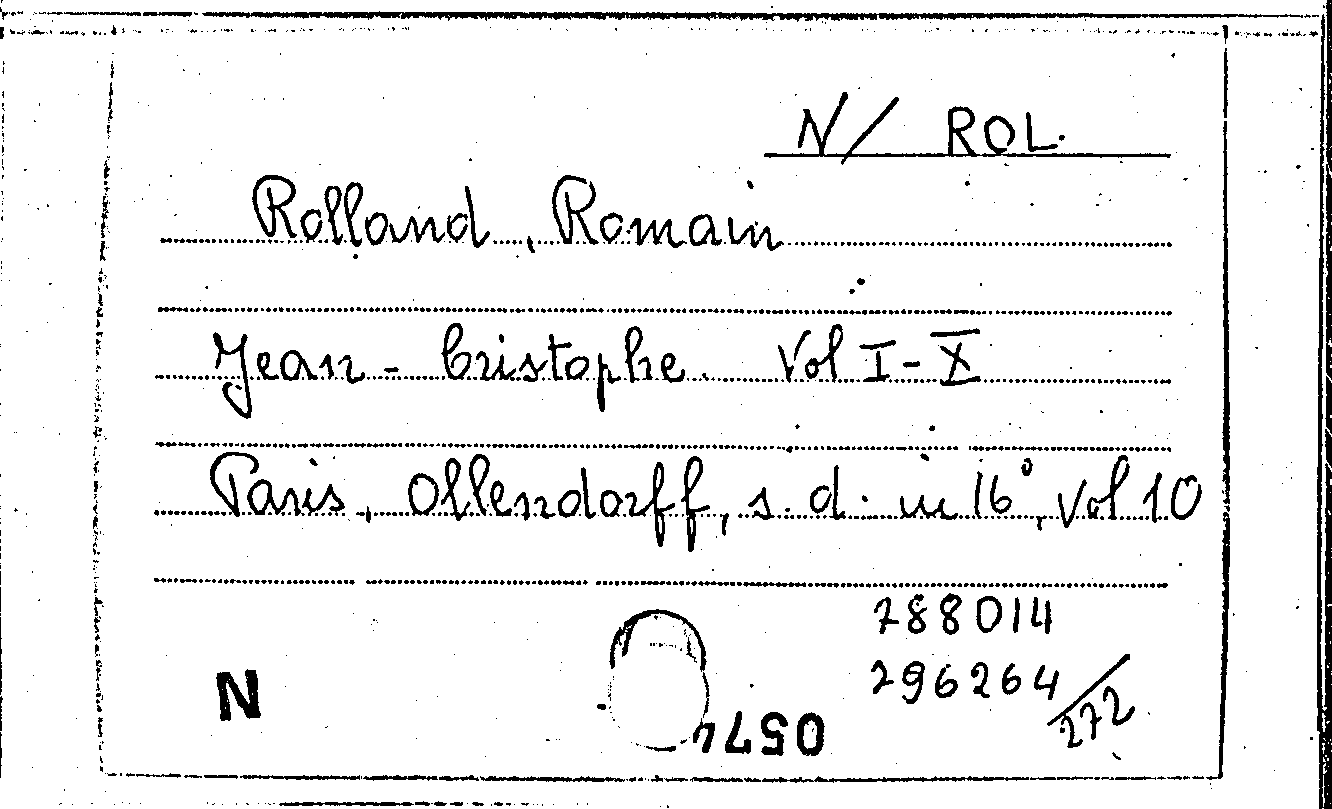 N/ ROL.
Rolland, Romain
Jean-Cristophe. Vol I-X
Paris, Ollendorff, s.d. in 16°, Vol 10
288014
296264/272
N
0574